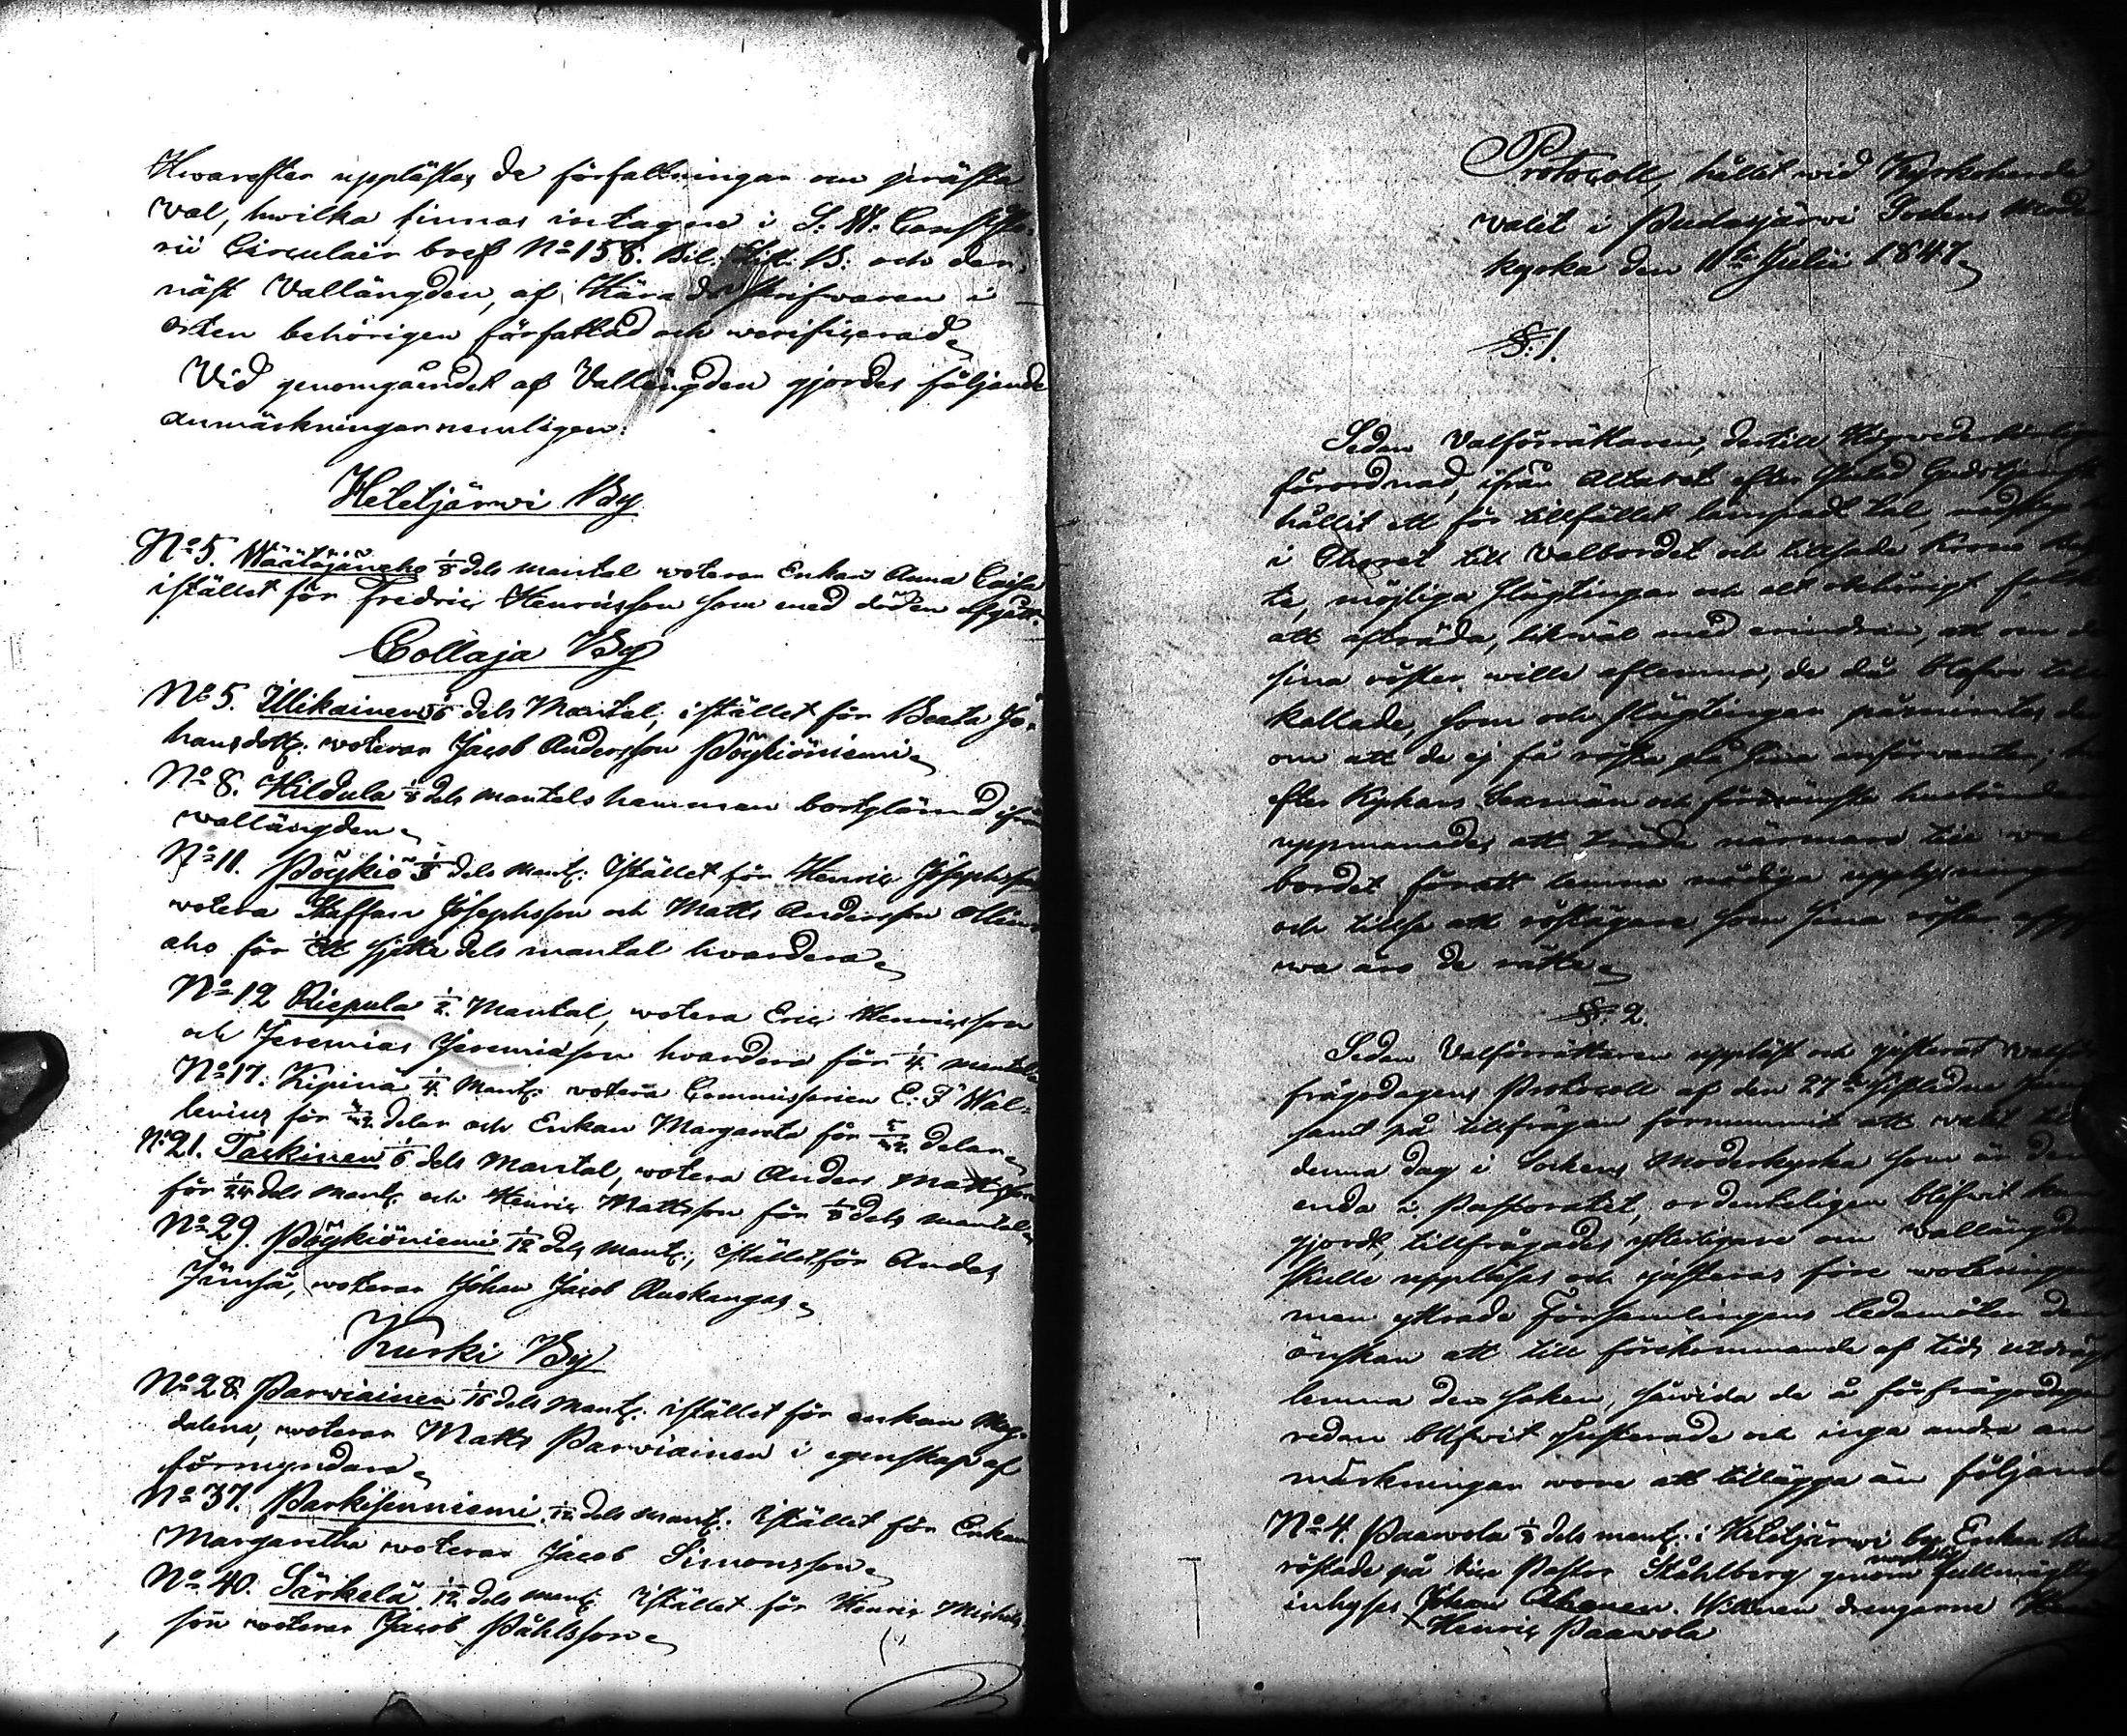 Hwarefter upplästes de författningar om präste
val, hwilka finnas intagne i S. W. Consisto-
rii Circulair bref No 158. Bil. Litt. B. och der-
näst Vallängden, af Häradsskrifwaren i
orten behörigen författad och verificerad.
Vid genomgåendet af Vallängden gjordes följande
anmärkningar nemligen:
Hetetjärwi By
No 5. Wäätäjänaho 1/8 dels mantal voterar Enkan Anna Caisa
istället för Fredric Henricsson som med döden afgått.
Collaja By
No 5. Illikainen 1/6 dels Mantal, istället för Beata Jo-
hansdotter voterar Jacob Andersson Pöykiöniemi.
No 8. Hildula 1/8 dels mantals hemman bortglömd ifrån
vallängden.
No 11. Pöykiö 1/3 dels mant: Istället för Henric Josephsson
votera Staffan Josephsson och Matts Andersson
aho för ett sjette dels mantal hvardera.
No 12 Riepula 1/2 Mantal, votera Eric Henricsson
och Jeremias Jeremiasson hvardera för 1/4 mantal.
No 17. Kipinä 1/4 Mant: votera Commissarien E. F. Wal-
lenius för delar och Enkan Margareta för delar.
No 21. Taskinen 1/6 dels Mantal, votera Anders Mattsson
för 1/24 dels mant: och Henric Mattsson för 1/8 dels mantal.
No 29. Pöykiöniemi 1/12 dels mant:, istället för Anders
Jämsä, voterar Johan Jacob Auokangas.
Kurki By
No 28. Parviainen 1/16 dels mant: istället för enkan Mag-
dalena, voterar Matts Parviainen i egenskap af
förmyndare.
No 37. Parkisenniemi 1/12 dels mant: Istället för Enkan
Margaretha voterar Jacob Simonsson.
No 40. Särkelä 1/12 dels mant: Istället för Henric Michels-
son voterar Jacob Påhlsson.
Protocoll, hållit wid Kyrkoherde
valet i Pudasjärwi Sockens Moder
kyrka den 11te Julii 1847.
§. 1.
Sedan Valförrättaren, dertill Högvederbörligen
förordnad, ifrån Altaret efter slutad Gudstjenst
hållit ett för tillfället lämpadt tal, nedsteg
i Choret till Valbordet och tillsade Krono
te, möjliga slägtingar och alt obehörigt folk
att afträda, likwäl med erindran, att om de
sina röster wille aflemna, de då blefwe till
kallade, som och slägtingar påmintes der
om att de ej få rösta på sina anförvanter;
efter Kyrkans Sexmän och förnämste husbönder
uppmanades att träda närmare till val
bordet för att lemna nödiga upplysningar
och tillse att röstägare som sina röster
wa äro de rätte.
§. 2.
Sedan Valförrättaren uppläst och justerat
frågodagens Protocoll af den 27de sistledne
samt på tillfrågan förnummit att valet till
denna dag i Sockens Moderkyrka som är den
enda i Pastoratet, ordenteligen blifwit kun
gjordt, tillfrågades ytterligare om vallängden
skulle uppläsas och justeras före voteringen
men yttrade Församlingens ledamöter den
önskan att till förekommande af tids utdrägt
lemna den saken, såwida de å förfrågodagen
redan blifwit justerade och inga andra an-
märkningar wore att tillägga än följande
No 4. Paawola 1/8 dels mant: i Hetetjärwi by Enkan
röstade på vice Pastor Ståhlberg genom fullmägtig
inhyses Johan Ahonen. Wittnen drengarne
Henric Paawola